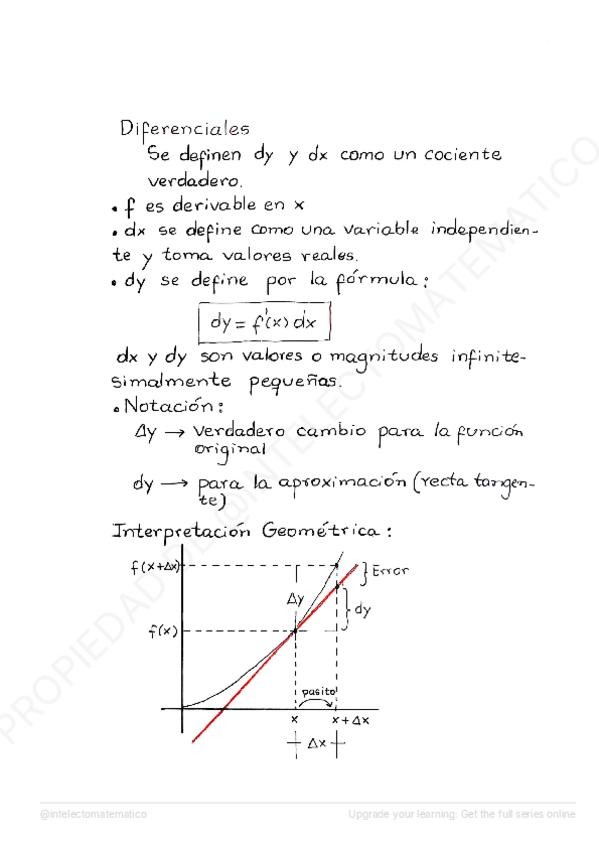 Diferenciales
Se definen dy y dx como un cociente
verdadero.
• f es derivable en x
• dx se define como una variable independien-
te y toma valores reales.
• dy se define por la fórmula:
dy = f'(x) dx
dx y dy son valores o magnitudes infinite-
simalmente pequeñas.
• Notación:
Δy → verdadero cambio para la función
original
dy → para la aproximación (recta tangen-
te)
Interpretación Geométrica:
f(x+Δx)
Error
Δy
dy
f(x)
pasito
x
x + Δx
Δx
PROPIEDAD DE @INTELECTOMATEMATICO
@intelectomatematico
Upgrade your learning: Get the full series online